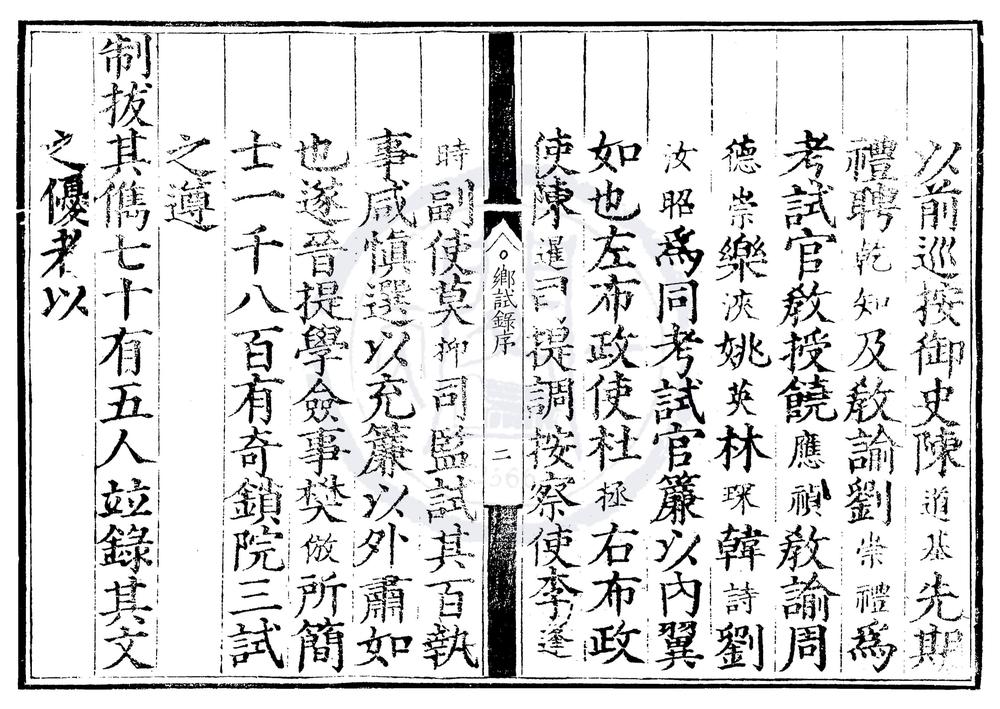 以前巡按御史陳道基先期
禮聘乾知及教諭劉崇禮爲
考試官教授饒應禎教諭周
德崇樂浹姚英林琛韓詩劉
汝昭爲同考試官簾以內翼
如也左布政使杜拯右布政
使陳暹司提調按察使李逢
鄉試錄序
二
時副使莫抑司監試其百執
事咸愼選以充簾以外肅如
也遂晉提學僉事樊倣所簡
士一千八百有奇鎖院三試
之遵
制拔其儁七十有五人竝錄其文
之優者以